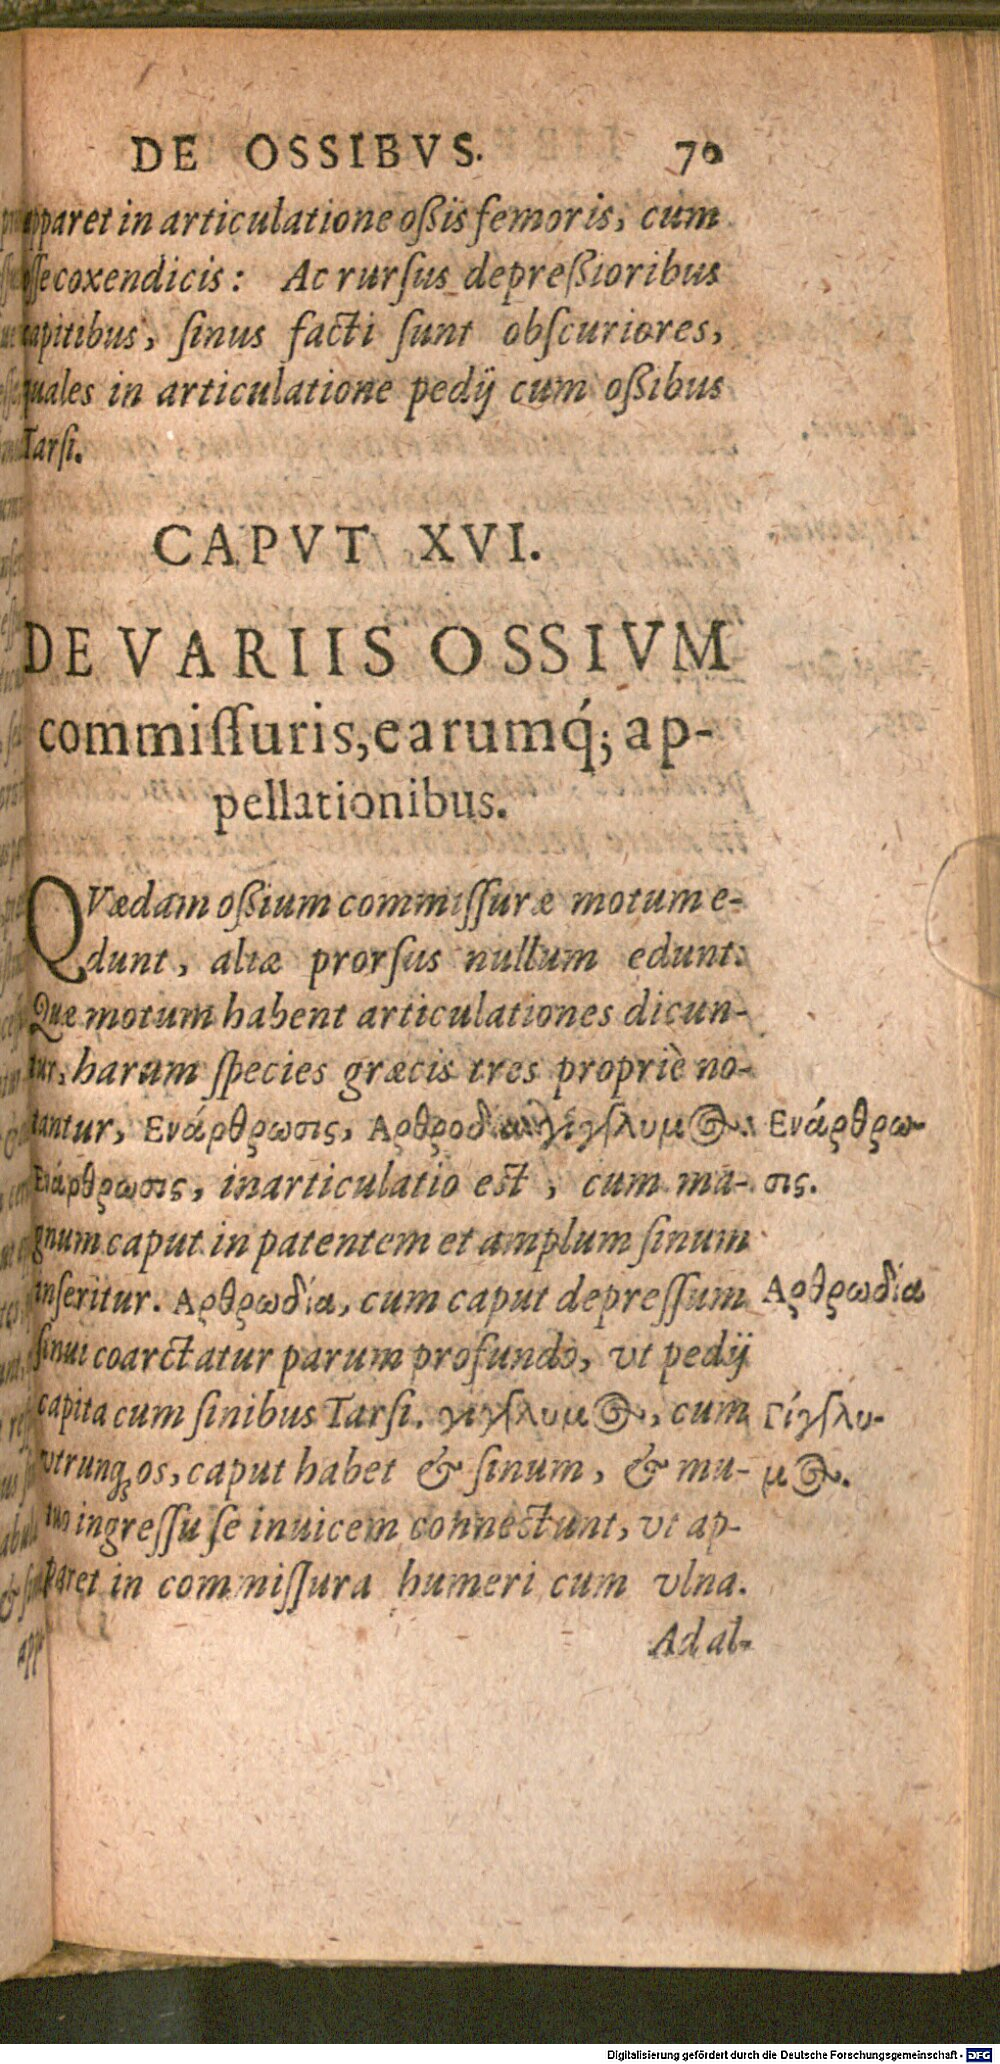 DE OSSIBVS. 70
apparet in articulatione oßis femoris, cum
osse coxendicis: Ac rursus depreßioribus
capitibus, sinus facti sunt obscuriores,
quales in articulatione pedij cum oßibus
Tarsi.
CAPVT XVI.
DE VARIIS OSSIVM
commissuris, earumq́; ap-
pellationibus.
QVædam oßium commissuræ motum e-
dunt, aliæ prorsus nullum edunt.
Quæ motum habent articulationes dicun-
tur, harum species græcis tres propriè no-
tantur, Ενάρθρωσις, Αρθροδία γίγγλυμος. Ενάρθρω-
Ενάρθρωσις, inarticulatio est, cum ma- σις.
gnum caput in patentem et amplum sinum
inseritur. Αρθρωδία, cum caput depressum Αρθρωδία
sinui coarctatur parum profundo, vt pedij
capita cum sinibus Tarsi. γιγγλυμος, cum Γίγγλυ-
vtrunq; os, caput habet & sinum, & mu- μος.
tuo ingressu se inuicem connectunt, vt ap-
paret in commissura humeri cum vlna.
Ad al-
Digitalisierung gefördert durch die Deutsche Forschungsgemeinschaft - DFG